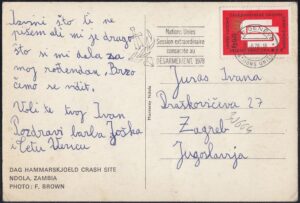 Izvini što ti ne
pišem ali mi je drago
što si mi dala za
moj rođendan, Brzo
ćemo se vidit,
Voli te tvoj Ivan
Pozdravi barba Joška
i tetu
DAG HAMMARSKJOELD CRASH SITE
NDOLA, ZAMBIA
PHOTO: F. BROWN
Nations Unies
Session extraordinaire
consacrée au
DESARMEMENT, 1978
NATIONS UNIES
Juras Ivana
Draškovićeva 27
Zagreb
Jugoslavija